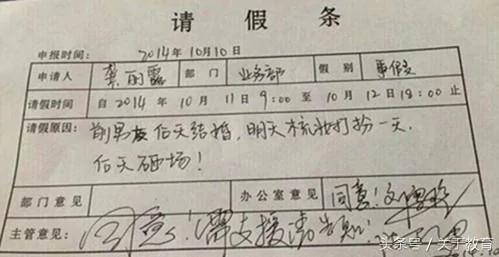 请假条
申报时间: 2014年10月10日
申请人 龚丽露 部门 业务部 假别 事假
请假时间 自2014年10月11日9:00至10月12日18:00止
请假原因: 前男友后天结婚,明天梳妆打扮一天,
后天砸场!
部门意见 办公室意见 同意!
主管意见: 同意!需支援请告知!
2014.10
头条号/天于教育